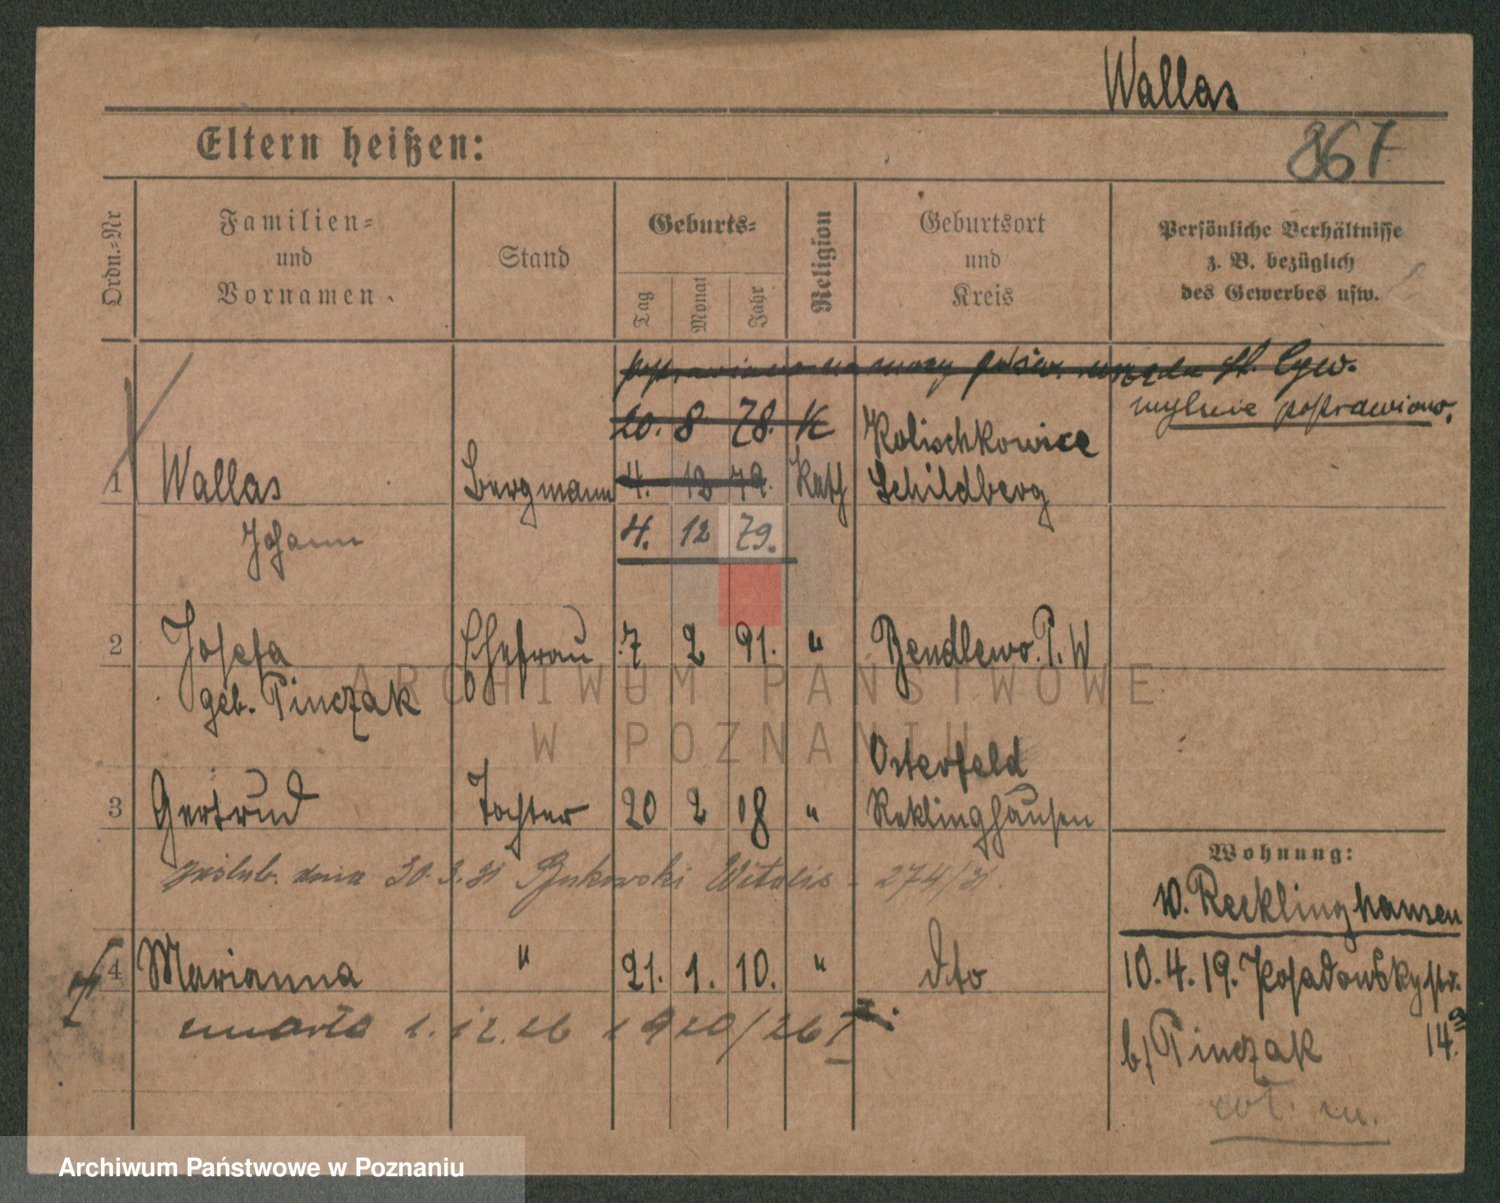 Wallas
867
Eltern heißen:
Ordn.=Nr
Familien=
und
Vornamen
Stand
Geburts=
Tag
Monat
Jahr
Religion
Geburtsort
und
Kreis
Persönliche Verhältnisse
z. B. bezüglich
des Gewerbes usw.
poprawiono na mocy
mylnie poprawiono.
20. 8. 78. K
Kolischkowice
1 Wallas Bergmann 4. 12 79. Kath Schildberg
Johann 4. 12 79.
2 Josefa Ehefrau 7 2 91. " Bendlewo P. W
geb. Pinczak
Osterfeld
3 Gertrud Tochter 20 2 18 " Reklinghausen
zaślub. dnia 30.3.31 Witalis - 274/31.
Wohnung:
v. Recklinghausen
4 Marianna " 21. 1. 10. " dto
10. 4. 19. Posadowskystr.
14.
umarła 1. 12. 26 1920/26 I
b/ Pinczak
ARCHIWUM PAŃSTWOWE
W POZNANIU
Archiwum Państwowe w Poznaniu